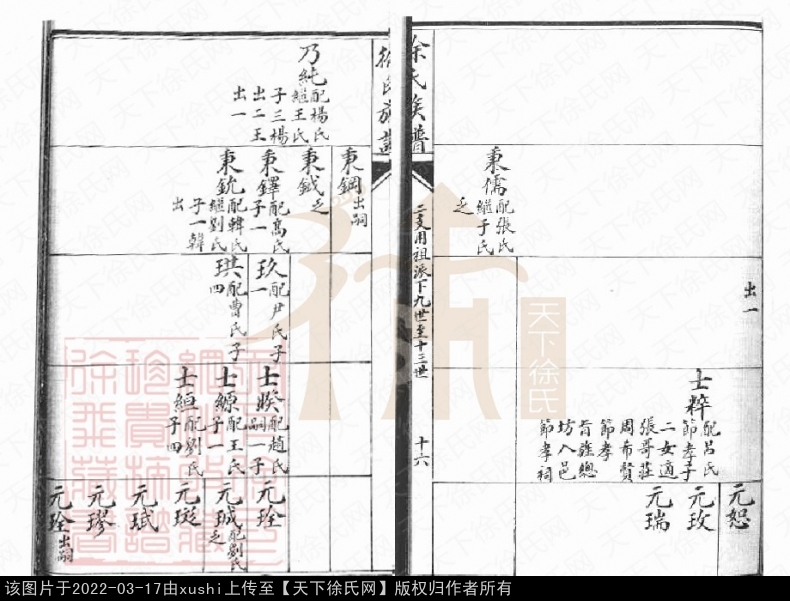 徐氏族譜
二支用祖派下九世至十三世
十六
秉儒配張氏
繼于氏
乏
出一
士粹配呂氏
節孝子
二女適
張哥莊
周希賢
節孝
旨旌總
坊入邑
節孝祠
元恕
元玫
元瑞
徐氏族譜
乃純配楊氏
繼王氏
子三楊
出二王
出一
秉鋼出嗣
秉鉞乏
秉鐸配高氏
子一
秉銃配韓氏
繼劉氏
子一韓
出
玖配尹氏子
一
琪配曹氏子
四
士睽配趙氏
嗣一子
士縓配王氏
子一
士縆配劉氏
子四
元珄
元珹配劉氏
乏
元璇
元珷
元璆
元珄出嗣
天下徐氏
该图片于2022-03-17由xushi上传至【天下徐氏网】版权归作者所有